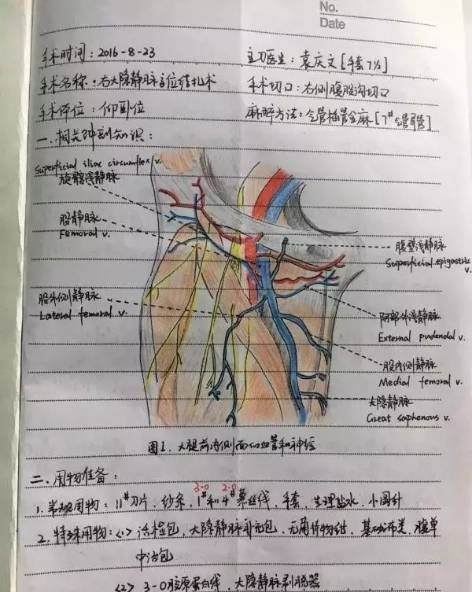 No.
Date
手术时间：2016-8-23 主刀医生：袁庆文[手套7½]
手术名称：右大隐静脉高位结扎术 手术切口：右侧腹股沟切口
手术体位：仰卧位 麻醉方法：全管插管全麻[7#管可管]
一、相关解剖知识：
Superficial iliac circumflex v.
旋髂浅静脉
股静脉
Femoral v.
腹壁浅静脉
Superficial epigastric v.
股外侧静脉
Lateral femoral v.
阴部外浅静脉
External pudendal v.
股内侧静脉
Medial femoral v.
大隐静脉
Great saphenous v.
图1、大腿前内侧面的血管和神经
二、用物准备：
3-0 2-0
1、常规用物：11#刀片、纱条、1#和4#慕丝线、手套、生理盐水、小圆针
2、特殊用物：<1> 活检包、大隐静脉补充包、无菌保物钳、基础布类、腹单
中治包
<2> 3-0胶原蛋白线、大隐静脉剥脱器